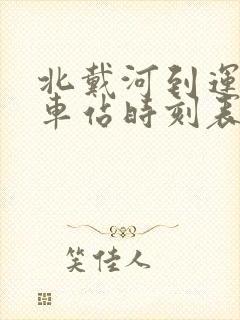 北戴河到运
車佔時刻表
笑佳人